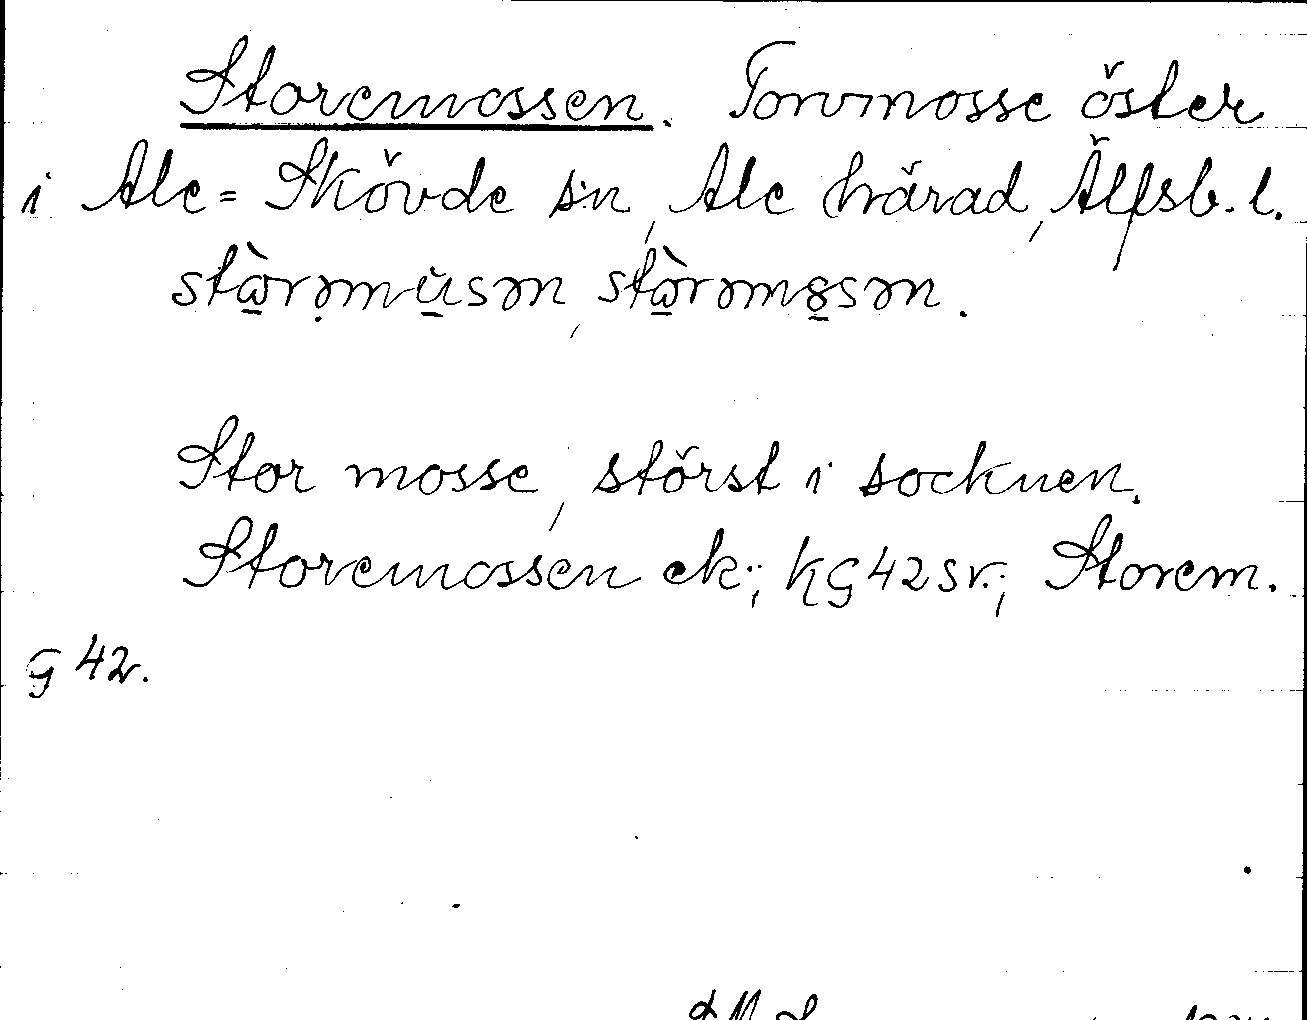 Storemossen. Torvmosse öster
i Ale=Skövde sn, Ale härad, Älfsb. l.
stɷ̀rəmu̇sən, stɷ̀rəm8sən.
Stor mosse, störst i socknen.
Storemossen ek; KG 42 sv.; Storem.
G 42.